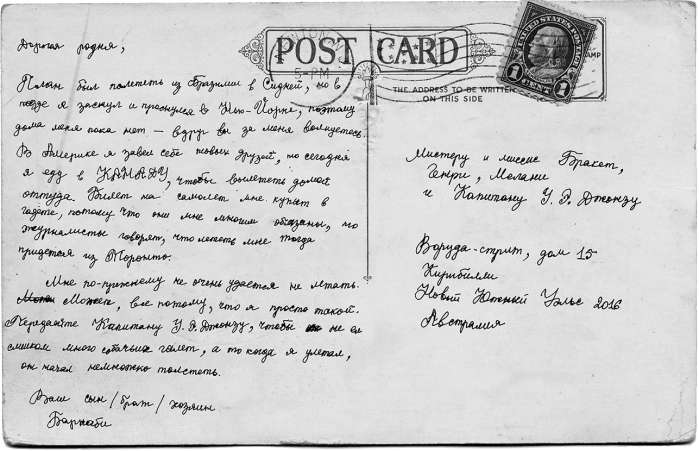 POST CARD
5-PM
THE ADDRESS TO BE WRITTEN
ON THIS SIDE
UNITED STATES POSTAGE
1 CENT 1
Дорогая родня,
План был полететь из Бразилии в Сидней, но в
поезде я заснул и проснулся в Нью-Йорке, поэтому
дома меня пока нет — вдруг вы за меня волнуетесь.
В Америке я завел себе новых друзей, но сегодня
я еду в КАНАДУ, чтобы вылететь домой
оттуда. Билет на самолет мне купят в
газете, потому что они мне многим обязаны, но
журналисты говорят, что лететь мне тогда
придется из Торонто.
Мне по-прежнему не очень удается не летать.
Может, все потому, что я просто такой.
Передайте Капитану У. Э. Джонзу, чтобы не ел
слишком много собачьих галет, а то когда я улетал,
он начал немножко толстеть.
Ваш сын/брат/хозяин
Барнаби
Мистеру и миссис Бракет,
Генри, Мелани
и Капитану У. Э. Джонзу
Варуда-стрит, дом 15
Кирибилли
Новый Южный Уэльс 2016
Австралия